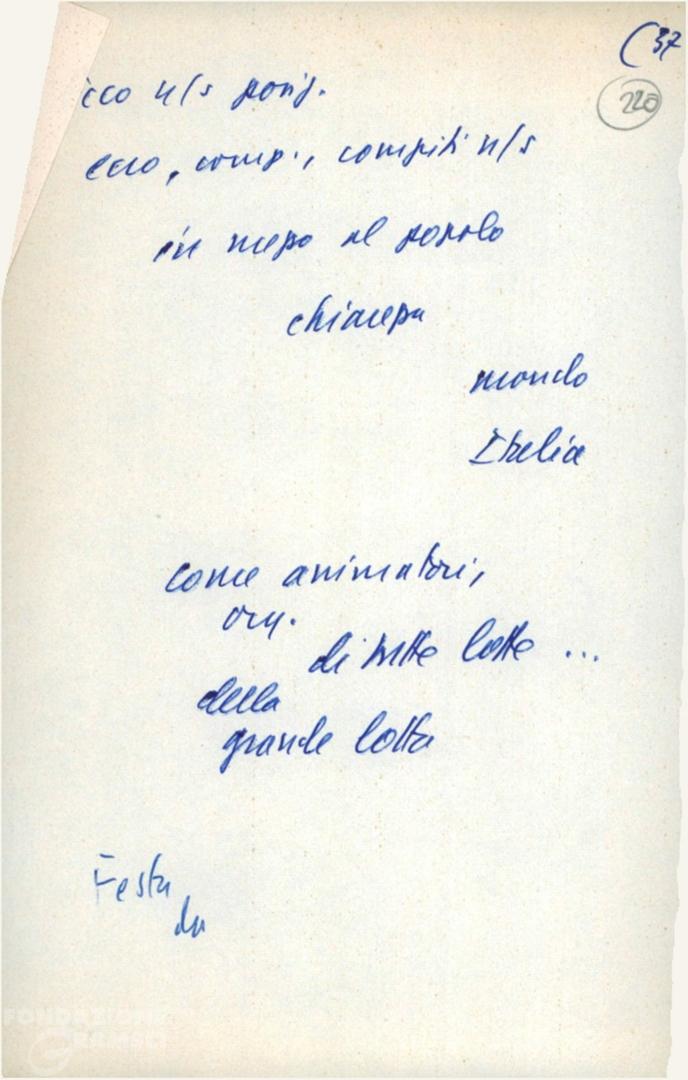 (37
220
cco n/s posiz.
ecco, comp., compiti n/s
in mezzo al popolo
chiarezza
mondo
Italia
come animatori,
org.
di tutte lotte ...
della
grande lotta
Festa
da
FONDAZIONE
GRAMSCI